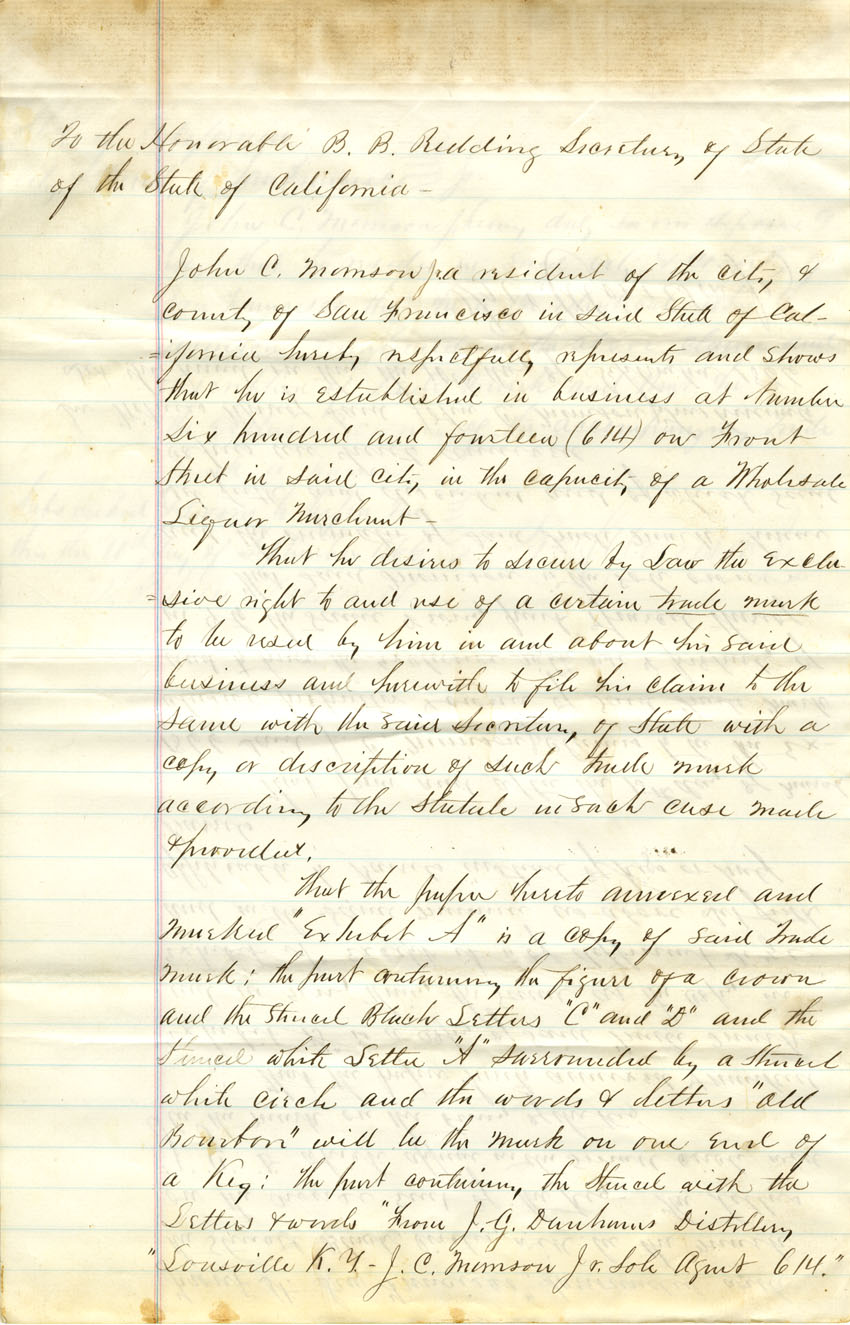 To the Honorable B. B. Redding Secretary of State
of the State of California -
John C. Morrison Jr a resident of the city &
county of San Francisco in said State of Cal-
=ifornia hereby respectfully represents and shows
that he is established in business at Number
Six hundred and fourteen (614) on Front
Street in said city in the capacity of a Wholesale
Liquor Merchant -
That he desires to secure by Law the exclu-
=sive right to and use of a certain trade mark
to be used by him in and about his said
business and herewith to file his claim to the
same with the said Secretary of State with a
copy or description of such trade mark
according to the Statute in such case made
& provided.
That the paper hereto annexed and
marked "Exhibit A" is a copy of said Trade
mark: the part containing the figure of a crown
and the stencil Black Letters "C" and "D" and the
stencil white Letter "A" surrounded by a stencil
white circle and the words & letters "Old
Bourbon" will be the mark on one end of
a Keg: the part containing the stencil with the
Letters & words "From J. G. Distillery
"Lousville K. Y. - J. C. Morrison Jr. Sole Agent 614."